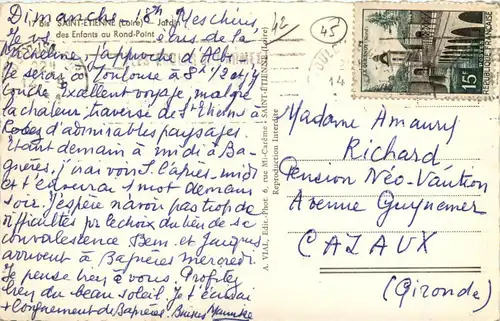 Dimanche 18h Mes chéris,
17 bis SAINT-ÉTIENNE (Loire) Jardin
des Enfants au Rond-Point
Je v s de la
Micheline, j'approche d'Albi
Je serai à Toulouse à 8h
couche. Excellent voyage, malgré
la chaleur, traversé de St Etienne à
d'admirables paysages.
Etant demain à midi à Ba
gnères, j'irai vous l'après-midi
et t'enverrai 1 mot demain
soir. J'espère n'avoir pas trop de
difficultés pr le choix du lieu de
convalescence Bern. et Jacques
arrivent à Bagnères mercredi
Je pense bien à vous. Profitez
bien du beau soleil. Je t'
+ longuement de Bagnères. Baisers
42
45
A. VIAL, Edit.-Phot. 6, rue Mi-Carême - SAINT-ÉTIENNE (Loire)
Reproduction Interdite
14
15F
RÉPUBLIQUE FRANÇAISE
LE QUESNOY
Madame Amaury
Richard
Pension Néo-Vaution
Avenue Guynemer
CAZAUX
(Gironde)